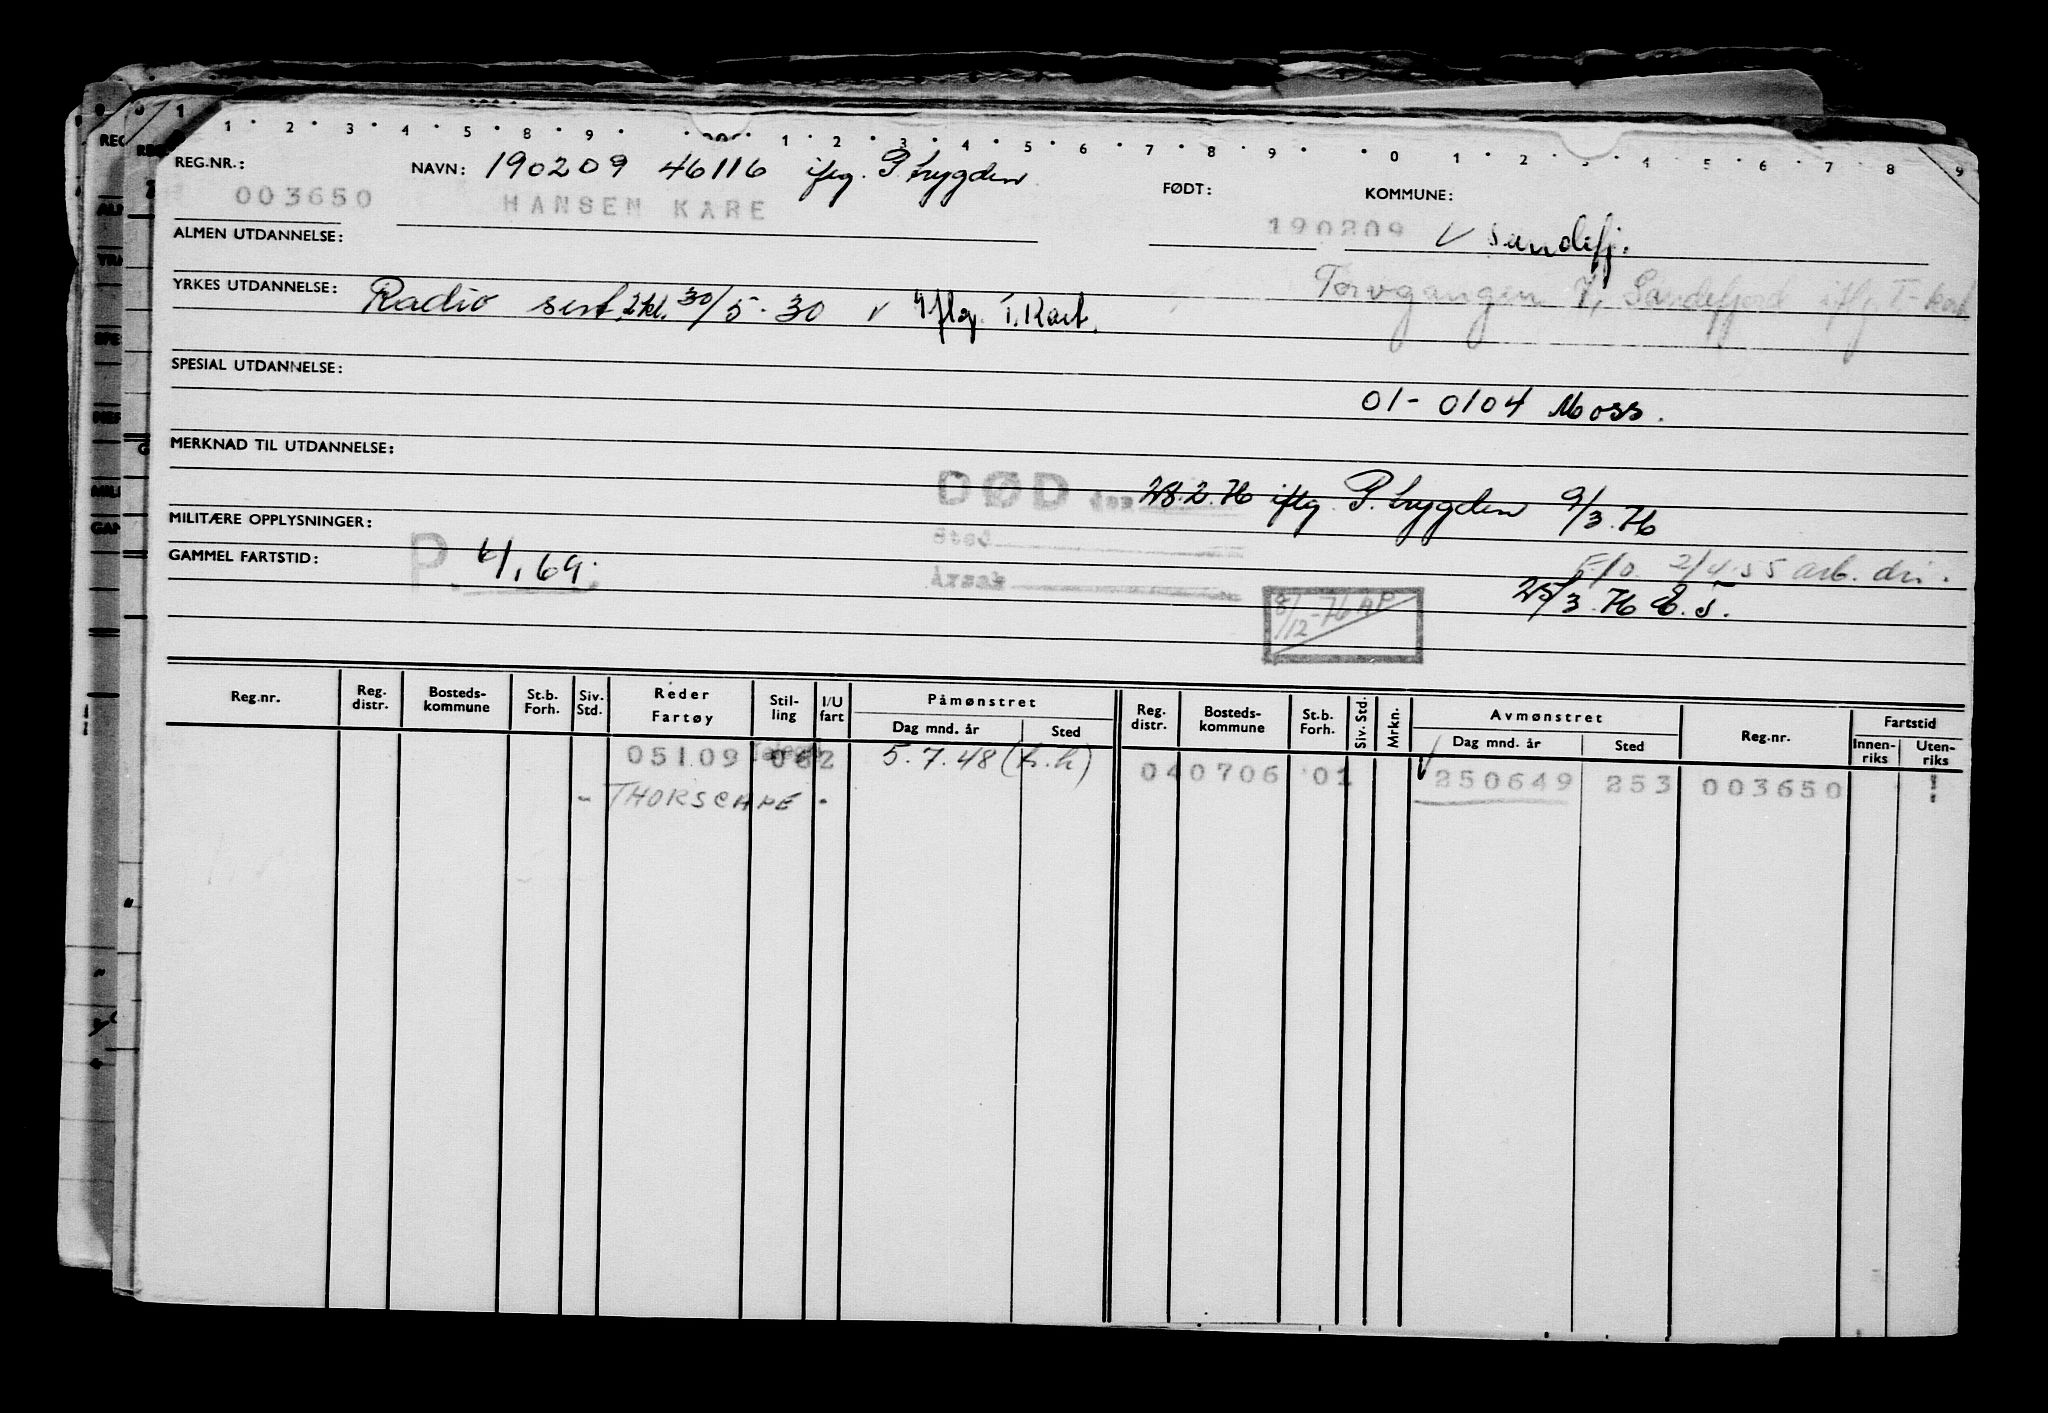 1 2 3 4 5 6 8 9 1 2 3 4 5 6 7 8 9 0 1 2 3 4 5 6 7 8 9
REG.NR.: NAVN: 190209 46116 iflg. P. trygden FØDT: KOMMUNE:
003650 HANSEN KARE 190209 Sandefj.
ALMEN UTDANNELSE:
Torvgangen 7, Sandefjord iflg. T-kort
YRKES UTDANNELSE: Radio sert. 2 kl. 30/5-30 v Iflg. T. Kort.
SPESIAL UTDANNELSE:
01-0104 Moss.
MERKNAD TIL UTDANNELSE:
DØD den 28.2.76 iflg. P. trygden 9/3.76
MILITÆRE OPPLYSNINGER:
Sted
GAMMEL FARTSTID: P. 4/69.
F/O 2/4-55 arb. dir.
Årsak
25/3.76
8/12-76 AP
Reg.nr. Reg. distr. Bosteds-kommune St.b. Forh. Siv. Std. Reder Fartøy Stil-ling I/U fart Påmønstret Dag mnd. år Sted Reg. distr. Bosteds-kommune St.b. Forh. Siv. Std. Mrkn. Avmønstret Dag mnd. år Sted Reg.nr. Fartstid Innen-riks Uten-riks
05109 062 5.7.48 (h.h) 040706 01 250649 253 003650
- THORSCAPE -